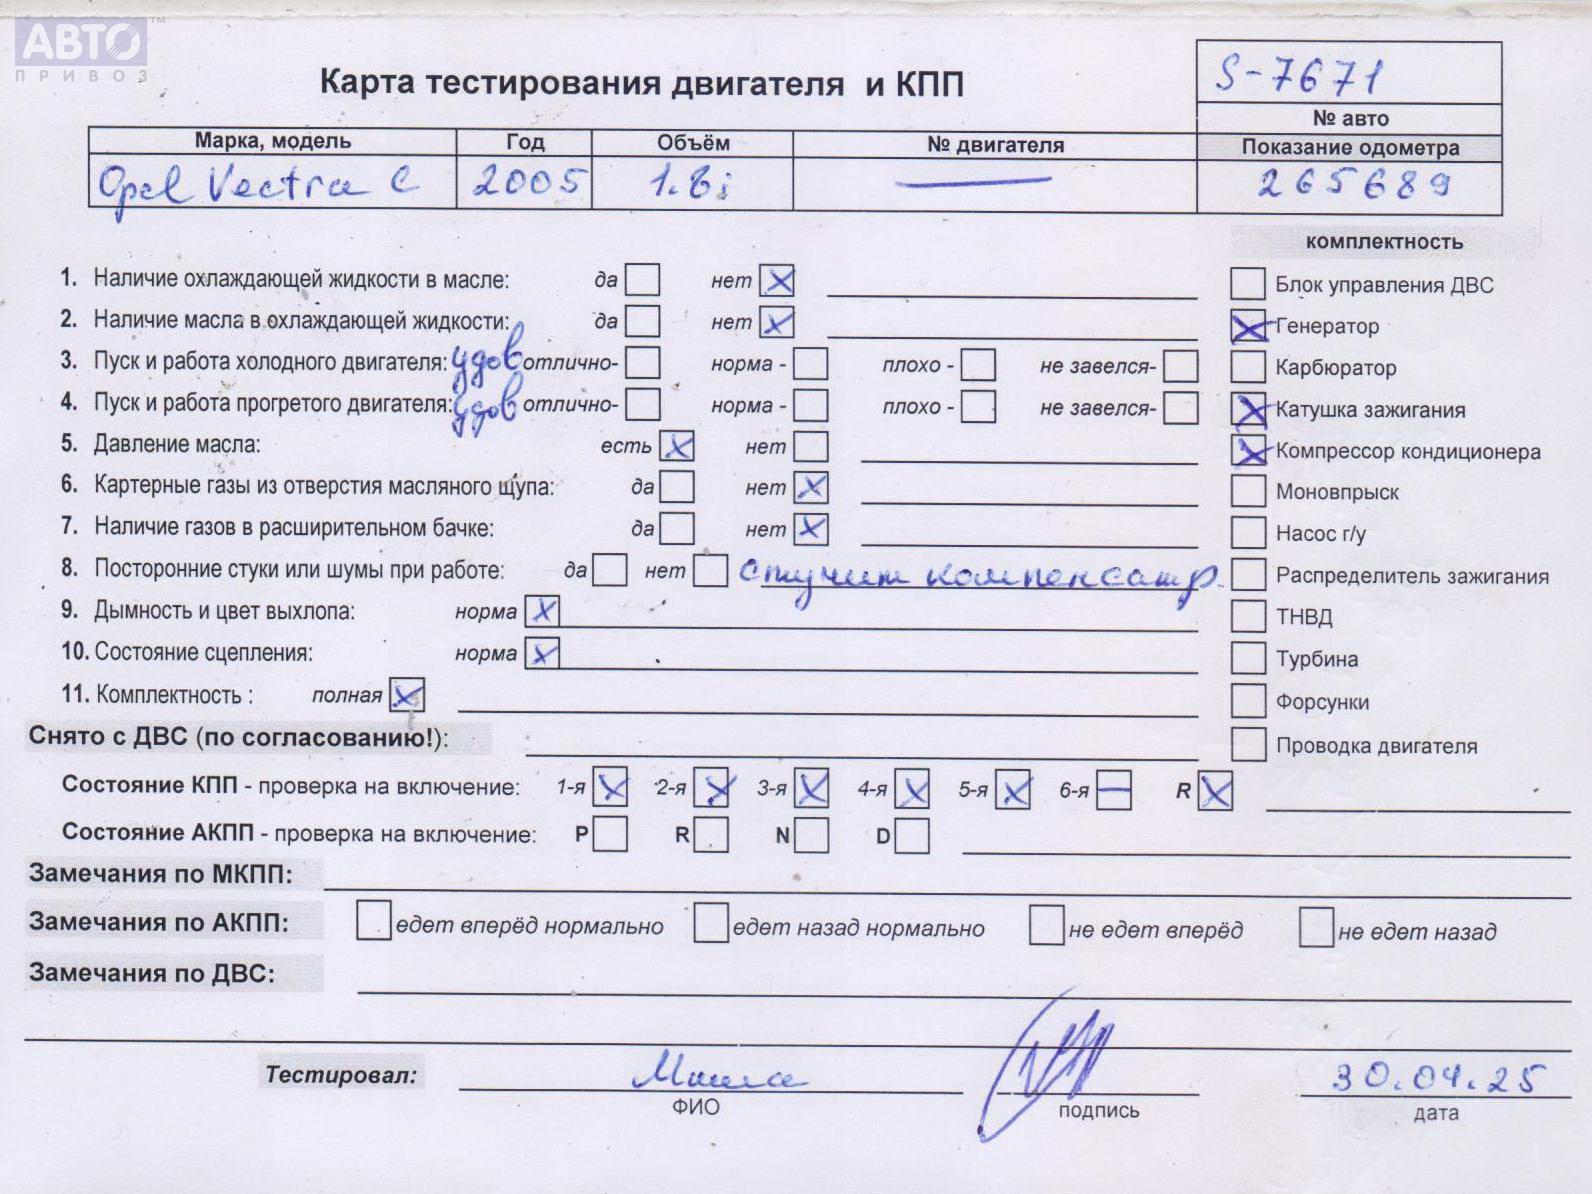 АВТО ТМ
ПРИВОЗ
Карта тестирования двигателя и КПП
S-7671
№ авто
Марка, модель Год Объём № двигателя Показание одометра
Opel Vectra C 2005 1.8i — 265689
комплектность
1. Наличие охлаждающей жидкости в масле: да нет X
Блок управления ДВС
2. Наличие масла в охлаждающей жидкости: да нет X
X Генератор
3. Пуск и работа холодного двигателя: удов отлично- норма - плохо - не завелся-
Карбюратор
4. Пуск и работа прогретого двигателя: удов отлично- норма - плохо - не завелся-
X Катушка зажигания
5. Давление масла: есть X нет
X Компрессор кондиционера
6. Картерные газы из отверстия масляного щупа: да нет X
Моновпрыск
7. Наличие газов в расширительном бачке: да нет X
Насос г/у
8. Посторонние стуки или шумы при работе: да нет стучит компенсатр.
Распределитель зажигания
9. Дымность и цвет выхлопа: норма X
ТНВД
10. Состояние сцепления: норма X
Турбина
11. Комплектность : полная X
Форсунки
Снято с ДВС (по согласованию!):
Проводка двигателя
Состояние КПП - проверка на включение: 1-я X 2-я X 3-я X 4-я X 5-я X 6-я — R X
Состояние АКПП - проверка на включение: P R N D
Замечания по МКПП:
Замечания по АКПП: едет вперёд нормально едет назад нормально не едет вперёд не едет назад
Замечания по ДВС:
Тестировал: Миша 30.04.25
ФИО подпись дата